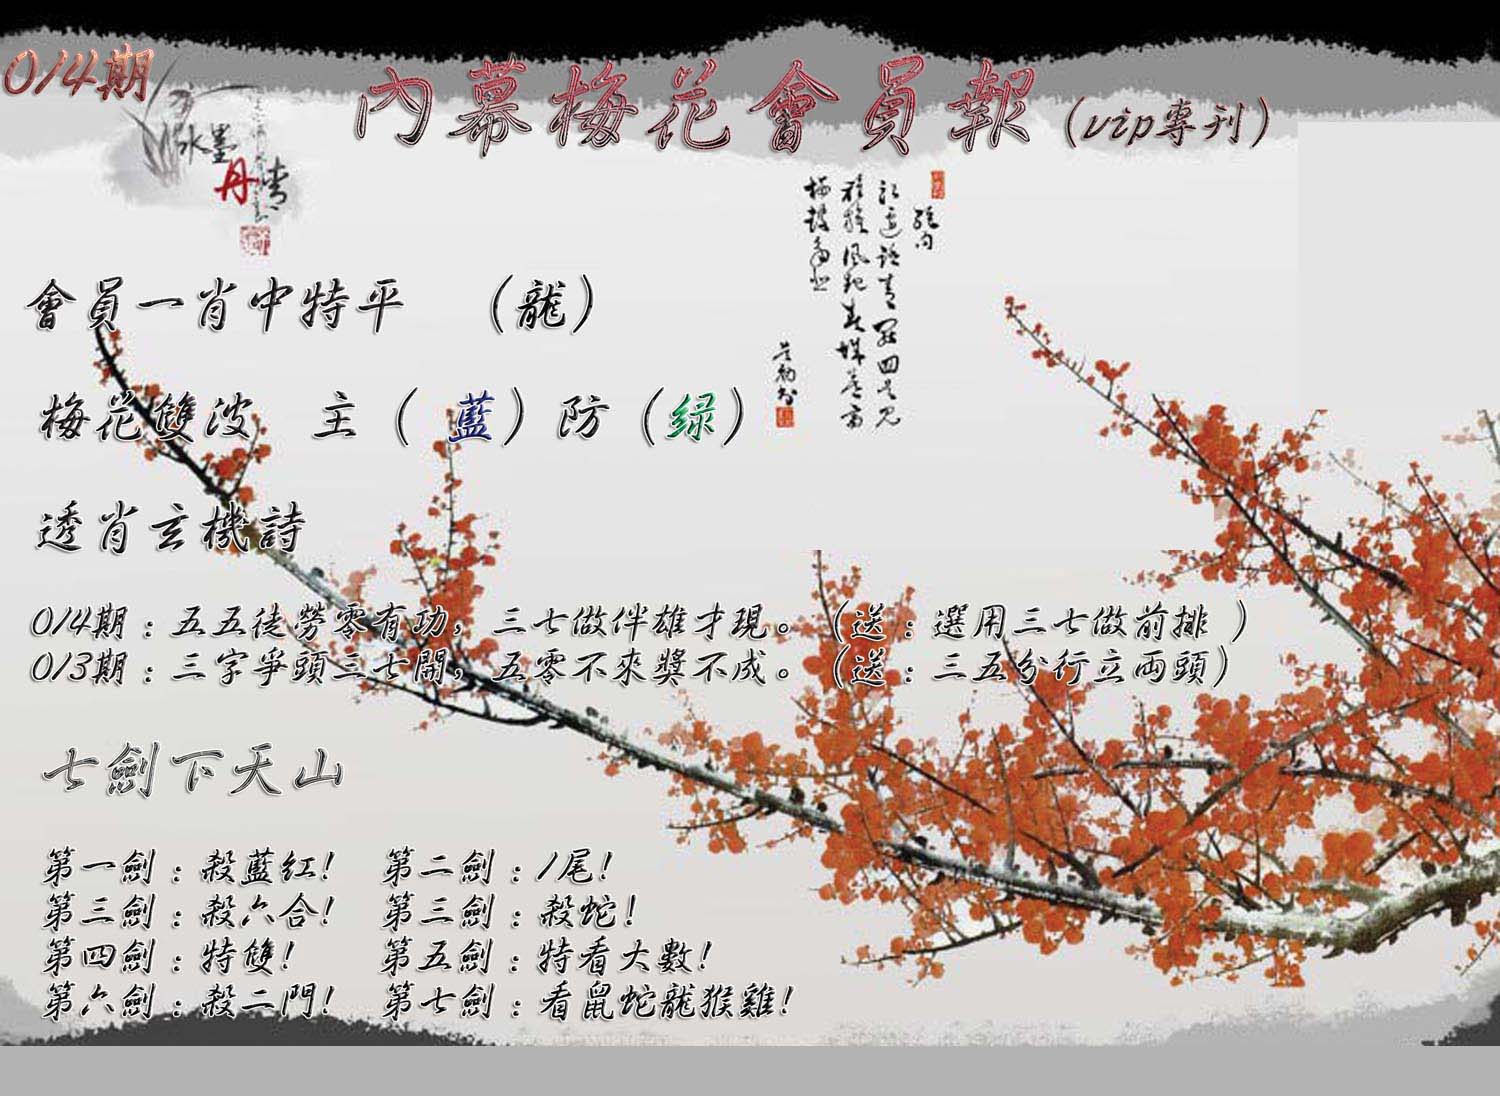 014期
內幕梅花會員報(vip專刊)
水墨
丹青
會員一肖中特平 (龍)
梅花雙波 主(藍)防(绿)
透肖玄機詩
014期:五五徒勞零有功,三七做伴雄才現。(送:選用三七做前排 )
013期:三字爭頭三七開,五零不來獎不成。(送:三五分行立両頭)
七劍下天山
第一劍:殺藍紅! 第二劍:1尾!
第三劍:殺六合! 第三劍:殺蛇!
第四劍:特雙! 第五劍:特看大數!
第六劍:殺二門! 第七劍:看鼠蛇龍猴雞!